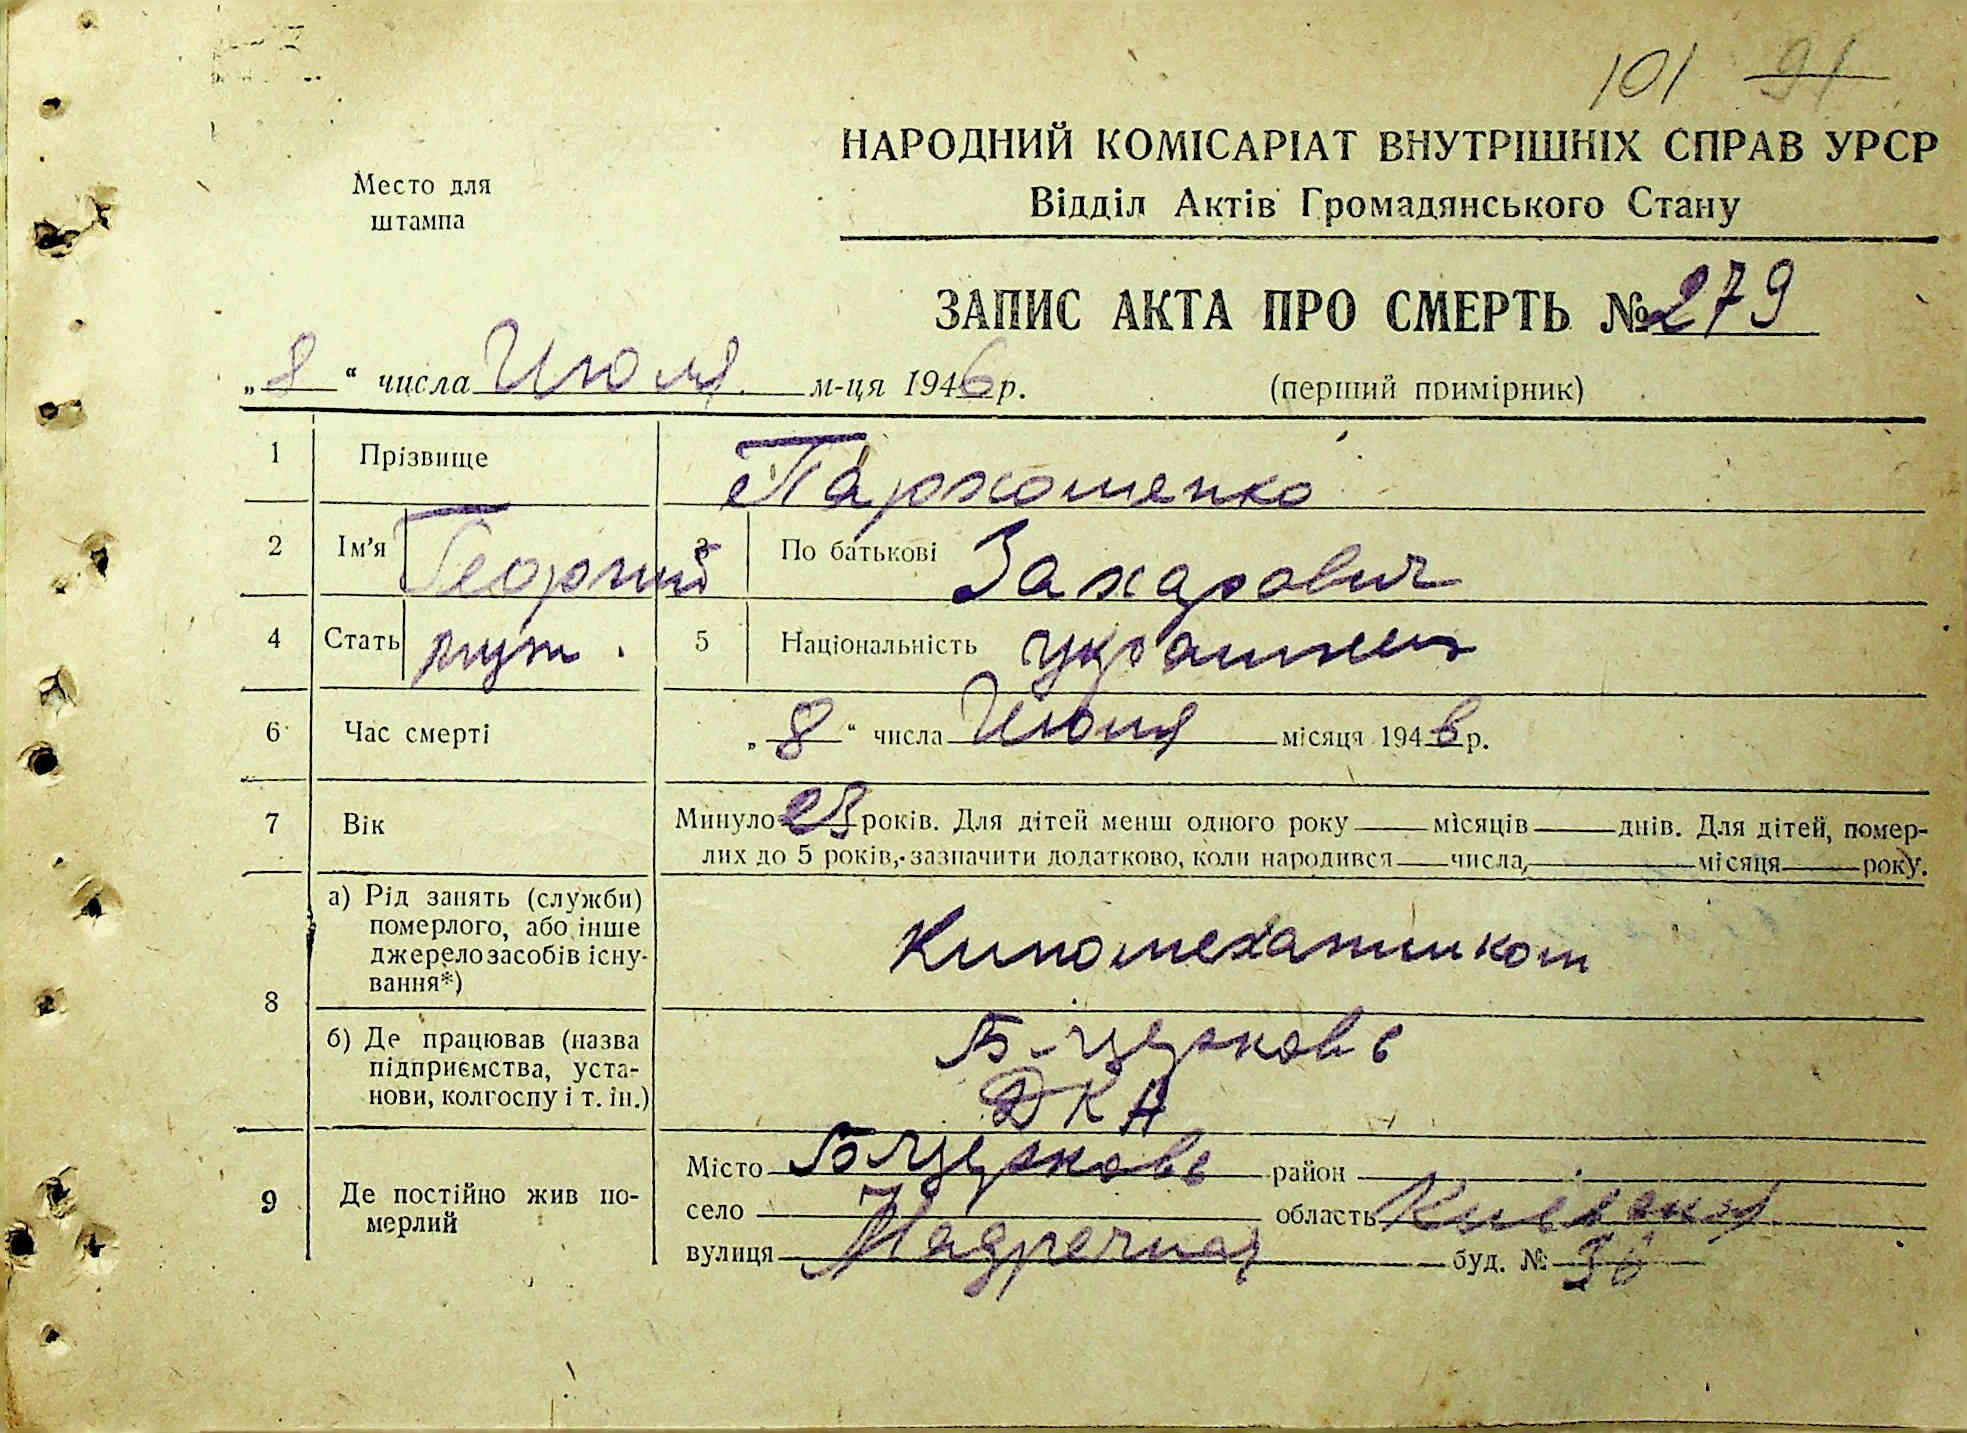 101 91
НАРОДНИЙ КОМІСАРІАТ ВНУТРІШНІХ СПРАВ УРСР
Место для
штампа
Відділ Актів Громадянського Стану
ЗАПИС АКТА ПРО СМЕРТЬ № 279
„ 8 “ числа Июля м-ця 1946 р.
(перший примірник)
1 Прізвище Пархоменко
2 Ім'я Георгий 3 По батькові Захарович
4 Стать муж. 5 Національність украинец
6 Час смерті „ 8 “ числа Июля місяця 1946 р.
7 Вік Минуло 28 років. Для дітей менш одного року місяців днів. Для дітей, помер-
лих до 5 років, зазначити додатково, коли народився числа, місяця року.
8
а) Рід занять (служби)
померлого, або інше
джерело засобів існу-
вання*)
Киномехаником
б) Де працював (назва
підприємства, уста-
нови, колгоспу і т. ін.)
Б-Церковь
ДКА
9 Де постійно жив по-
мерлий
Місто Б Церковь район
село область Киевская
вулиця Надречная буд. №